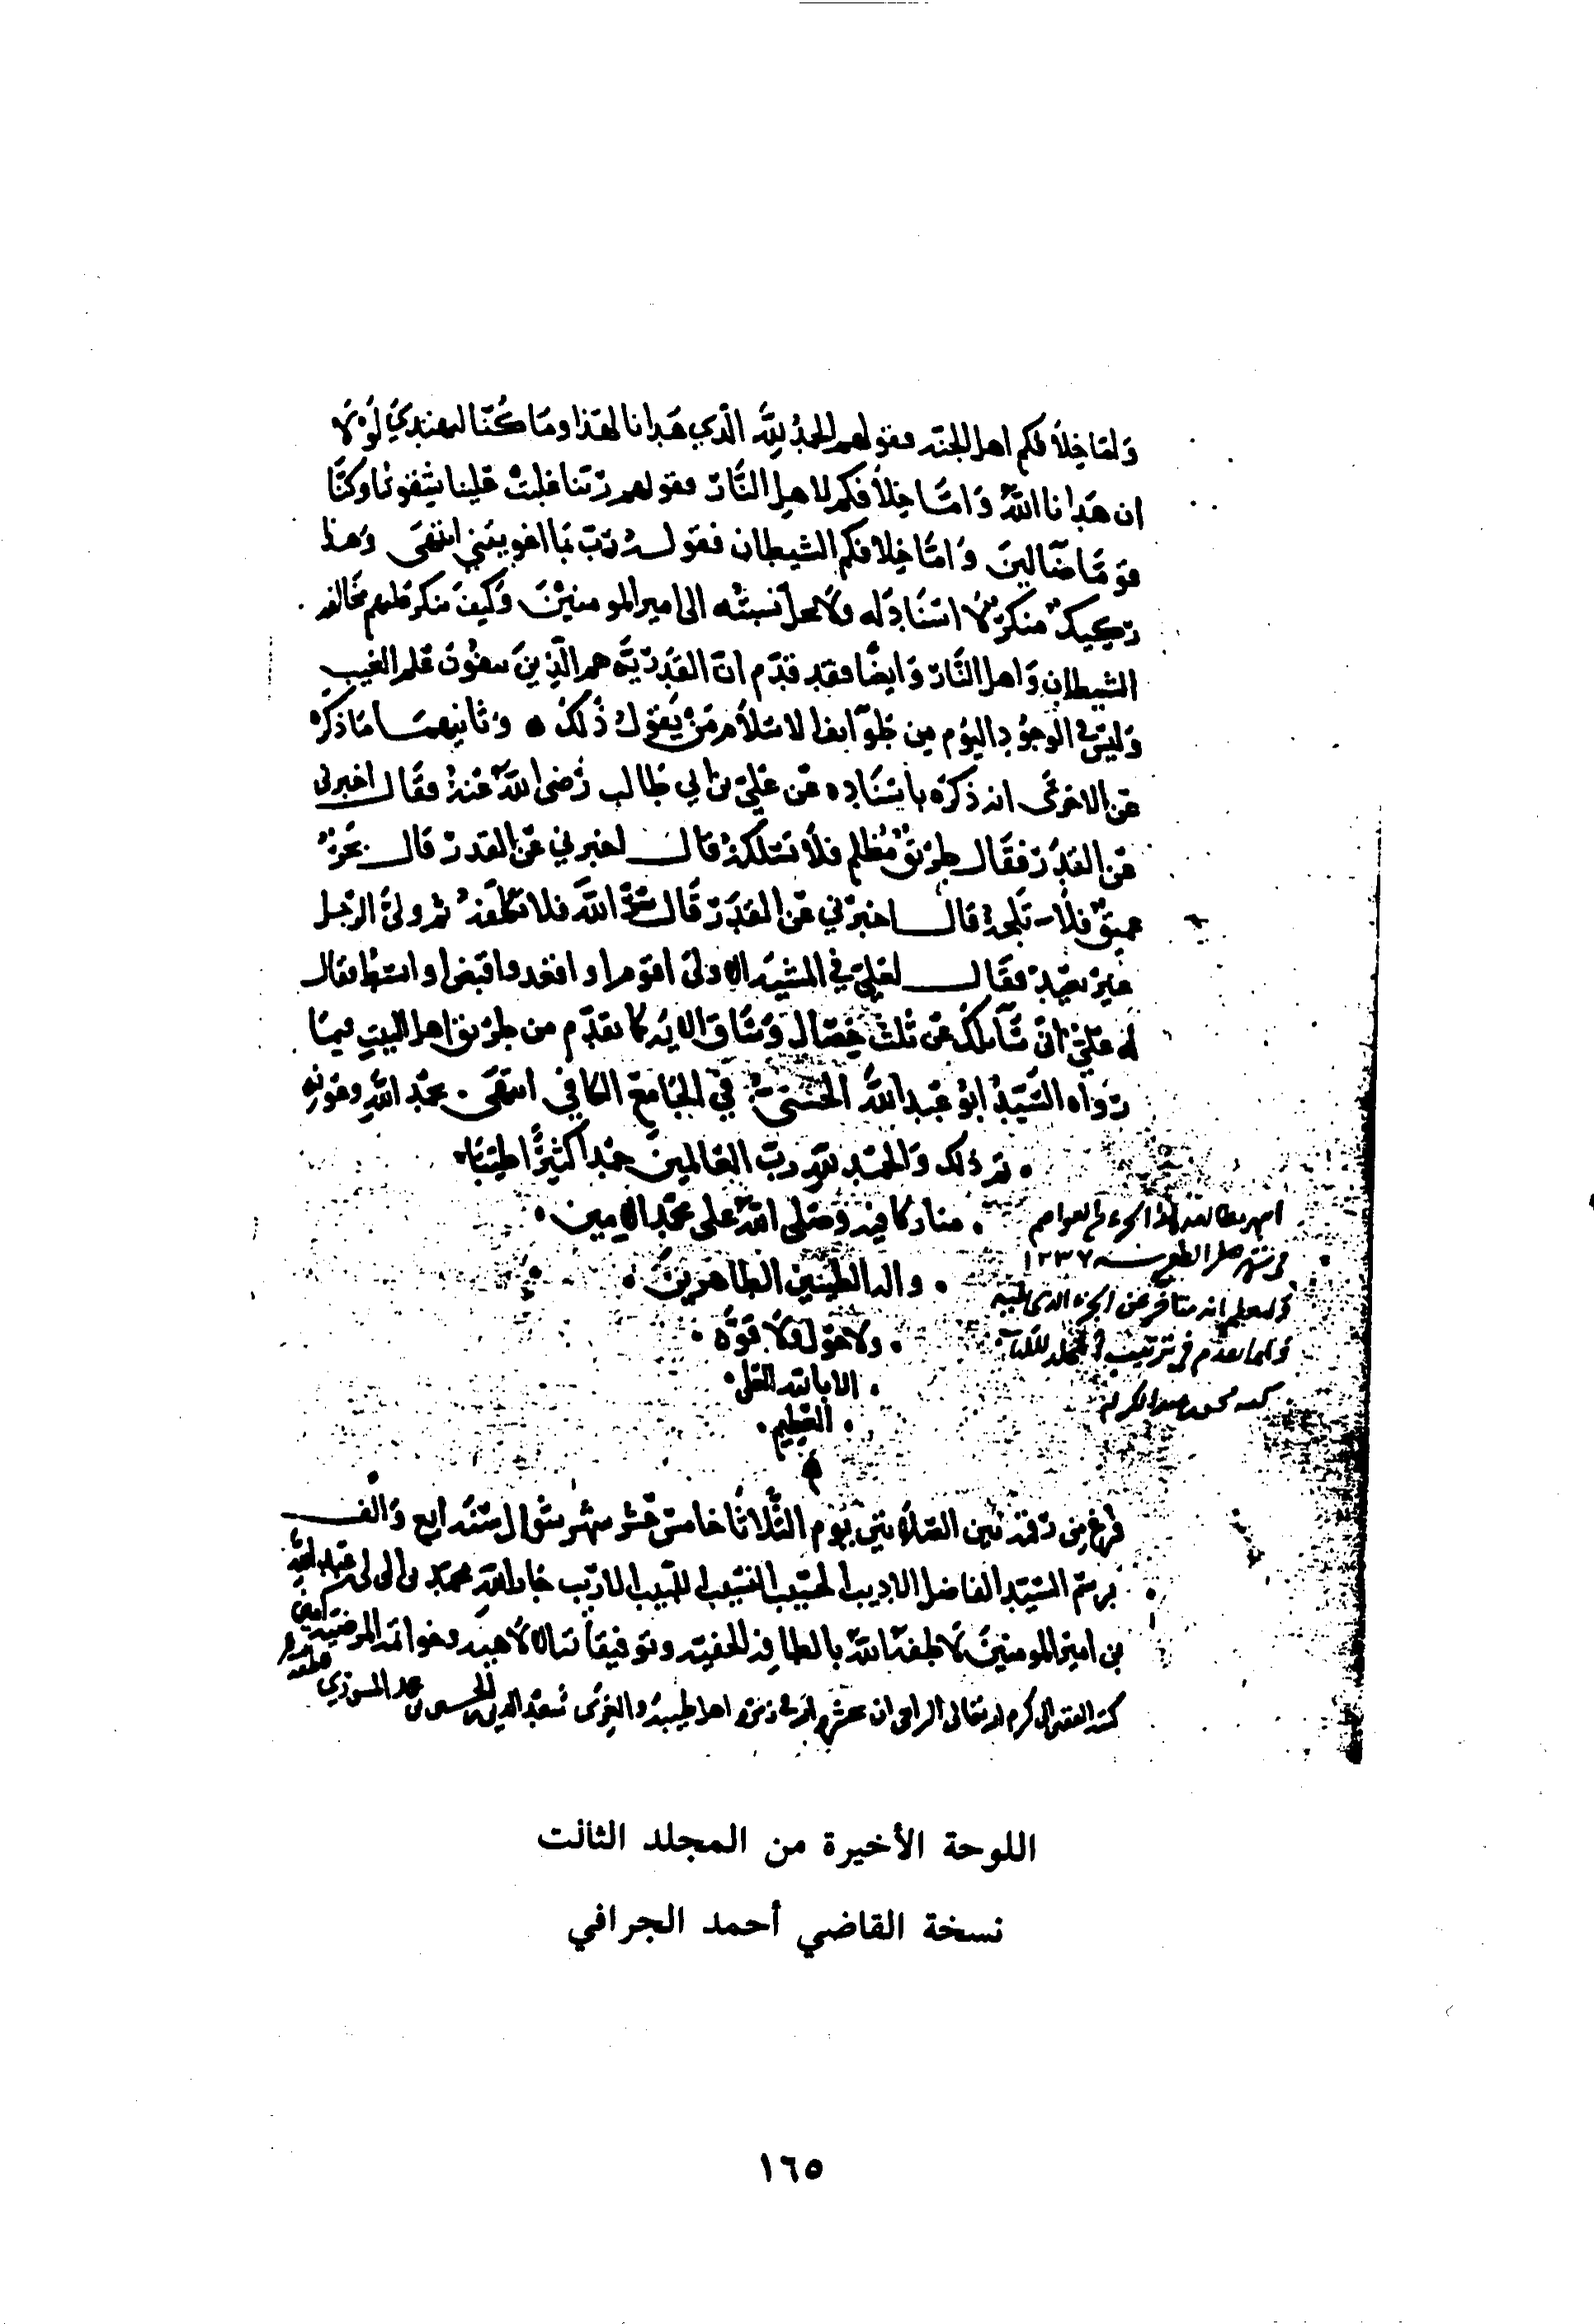 وَلمَا خِلاَفكم اهل الجنه فقولهم الحمدُ لِلّهِ الّذي هَدانا لهَذا ومَا كُنّا لِنهتديَ لَوْلاَ
ان هَدانا اللّهُ وَامّا خِلاَفكم لاهل النَّار فقولهم ربّنا غلبت عَلينا شِقوتُنا وَكنّا
قومًا ضَالّينَ وَامّا خِلافكم الشيطان فقولـه رَبّ بمَا اغويتني انتهَى وَهذا
رَكِيك منكرٌ لاَ اسْنَادَ له ولاَ يحلّ نسبتُه الى امير المومنينَ وَكيفَ ينكر عليهم مخالفه
الشيطان وَاهل النَّار وَايضًا فقد تقدّم انّ القَدَريّه هم الّذينَ ينفُونَ عِلم الغيب
وَليسَ في الوجُود اليَوْم مِن طوَآئف الاسْلاَم مَنْ يَقول ذَلكَ ٥ وَثَانيهمَـا مَا ذكرَه
عَن الاوزَاعى انه ذكرَه باسْنَادِه عَن عَليّ بن ابي طَالب رَضى اللّه عَنهُ فقَالـ اخبرنى
عَن القدَر فقَالـ طريقٌ مُظلم فلاَ تسْلكهُ قال اخبرني عَن القدر قال بَحْرٌ
عميقٌ فلاَ تلجهُ قالـ اخبرْني عَن القدَر قَال سرّ اللّه فلا تكلّفهُ ثم ولىَّ الرّجل
غير بعيدٍ فقَالـ لعَليّ في المشيّه الاولى اقوم او اقعد واقبض وابسُط فقال
له عليٌّ انّى سَآئلكَ عَن ثلث خِصَال وَسَاق الاثر كما تقدّم من طريق اهل البيت فيمَا
رَوَاه السّيّدُ ابُو عَبد اللّه الحسَنى في الجَامِع الكَافي انتهَى . بحمْد اللّهِ وعَونِهِ
. تم ذلك وَالحمْد للّهِ رَبّ العَالمينَ حَمْدا كثيرًا طيّبًا .
. مبَاركا فيه وَصَلى اللّه على محمّد الامين .
. واله الطّيّبين الطاهرينَ .
. ولا حَوْل وَلاَ قوّه .
. الا باللّه العلى .
. العَظِيم .
انتهى مطالعه هذا الجزء من العواصم
في شهر صفر الظفر سنـه ١٢٣٧
وليعلم انه متاخر عن الجزء الذي يليه
وانما تقدم في ترتيب المجلد
كتبه محسن عبد الكريم
فرغ مِن رَقمه بَين الصَلاَتين يَوم الثّلاثَا خامس عَشر شهر شوال سَنَه ارْبع وَالفـــ
برسم السّيّد الفاضل الاديب الحسَيب النسّيب اللبيب
بن امير المومنينَ لاَطفهُ اللّه بالطافِه الخفيّه
كتبه الفقير الى كرم الله تعَالى الراجى ان
اللوحة الأخيرة من المجلد الثالث
نسخة القاضي أحمد الجرافي
١٦٥